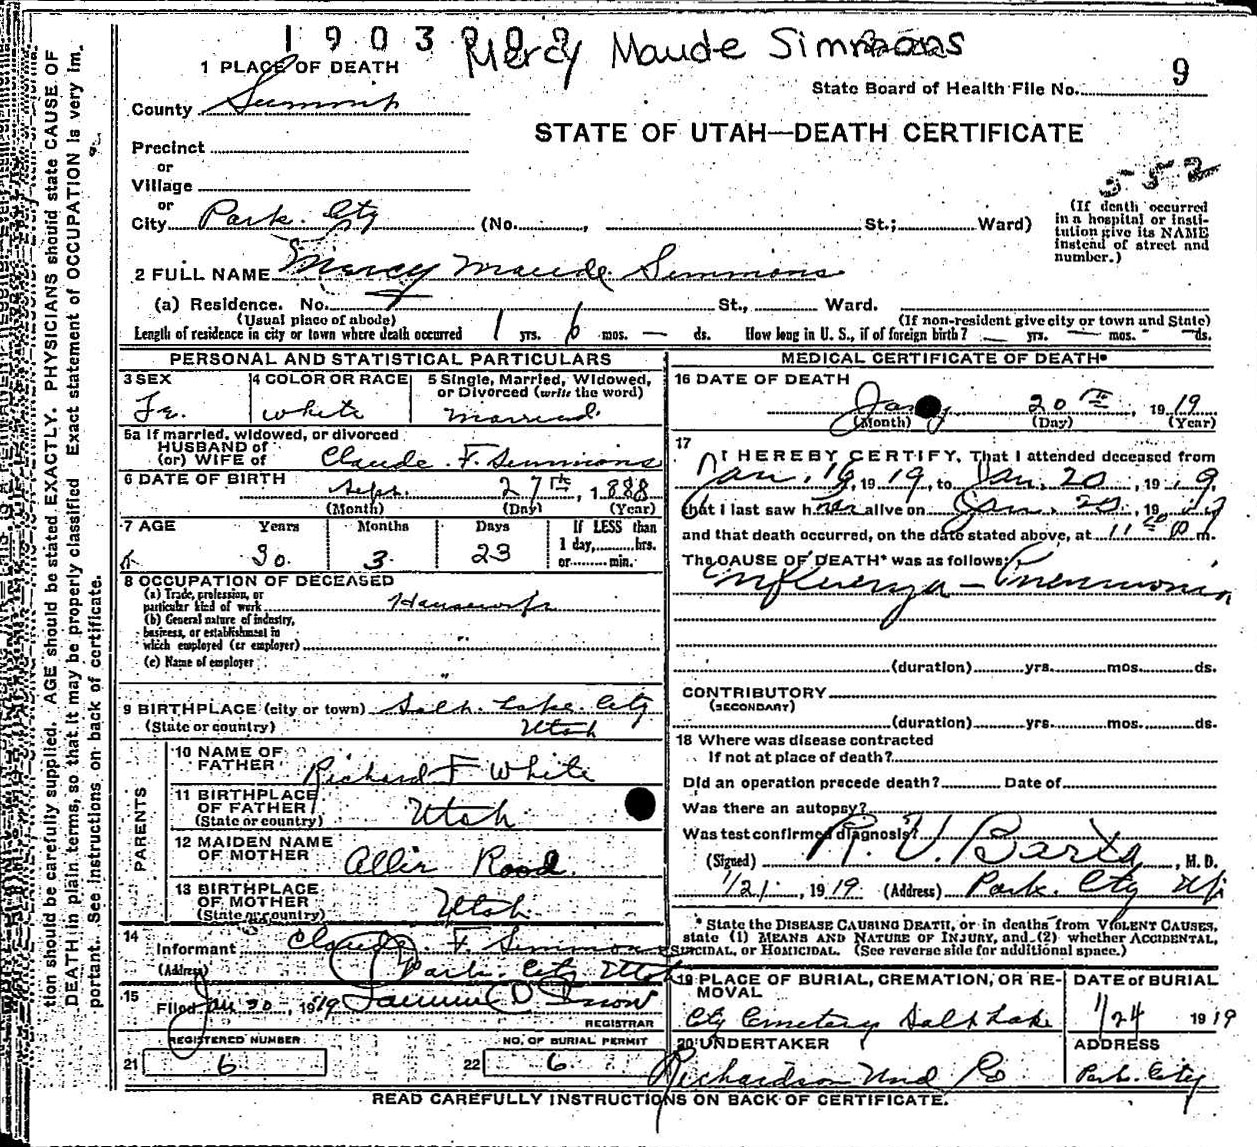 1903
Mercy Maude Simmons
1 PLACE OF DEATH
9
State Board of Health File No.
County Summit
STATE OF UTAH—DEATH CERTIFICATE
Precinct
or
Village
552
or
City Park City (No. , St.; Ward)
(If death occurred
in a hospital or insti-
tution give its NAME
instead of street and
number.)
2 FULL NAME Mercy Maude Simmons
(a) Residence. No. St., Ward.
(Usual place of abode)
(If non-resident give city or town and State)
Length of residence in city or town where death occurred 1 yrs. 6 mos. — ds. How long in U. S., if of foreign birth? — yrs. — mos. — ds.
PERSONAL AND STATISTICAL PARTICULARS
3 SEX
Fe.
4 COLOR OR RACE
White
5 Single, Married, Widowed,
or Divorced (write the word)
Married
5a If married, widowed, or divorced
HUSBAND of
(or) WIFE of Claude F. Simmons
6 DATE OF BIRTH Sept. 27th, 1888
(Month) (Day) (Year)
7 AGE Years Months Days
30 3 23
If LESS than
1 day, hrs.
or min.
8 OCCUPATION OF DECEASED
(a) Trade, profession, or
particular kind of work Housewife
(b) General nature of industry,
business, or establishment in
which employed (or employer) "
(c) Name of employer "
9 BIRTHPLACE (city or town) Salt Lake City
(State or country) Utah
PARENTS
10 NAME OF
FATHER Richard F White
11 BIRTHPLACE
OF FATHER
(State or country) Utah
12 MAIDEN NAME
OF MOTHER Allie Rood.
13 BIRTHPLACE
OF MOTHER
(State or country) Utah
14
Informant Claude F. Simmons
(Address) Park City Utah
15
Filed Jan 20, 1919 Snow
REGISTRAR
REGISTERED NUMBER
21 6
NO. OF BURIAL PERMIT
22 6
MEDICAL CERTIFICATE OF DEATH
16 DATE OF DEATH
Jany 20th, 1919
(Month) (Day) (Year)
17
I HEREBY CERTIFY, That I attended deceased from
Jan. 16, 1919, to Jan. 20, 1919,
that I last saw her alive on Jan. 20, 1919
and that death occurred, on the date stated above, at 11 P m.
The CAUSE OF DEATH* was as follows:
Influenza - Pneumonia
(duration) yrs. mos. ds.
CONTRIBUTORY
(SECONDARY)
(duration) yrs. mos. ds.
18 Where was disease contracted
If not at place of death?
Did an operation precede death? Date of
Was there an autopsy?
Was test confirmed diagnosis?
(Signed) R. V. Barta, M. D.
1/21, 1919 (Address) Park City Ut
* State the DISEASE CAUSING DEATH, or in deaths from VIOLENT CAUSES,
state (1) MEANS AND NATURE OF INJURY, and (2) whether ACCIDENTAL,
SUICIDAL, or HOMICIDAL. (See reverse side for additional space.)
19 PLACE OF BURIAL, CREMATION, OR RE-
MOVAL
City Cemetery Salt Lake
DATE of BURIAL
1/24 1919
20 UNDERTAKER
Richardson Und Co
ADDRESS
Park City
READ CAREFULLY INSTRUCTIONS ON BACK OF CERTIFICATE.
tion should be carefully supplied. AGE should be stated EXACTLY. PHYSICIANS should state CAUSE OF
DEATH in plain terms, so that it may be properly classified. Exact statement of OCCUPATION is very im-
portant. See instructions on back of certificate.